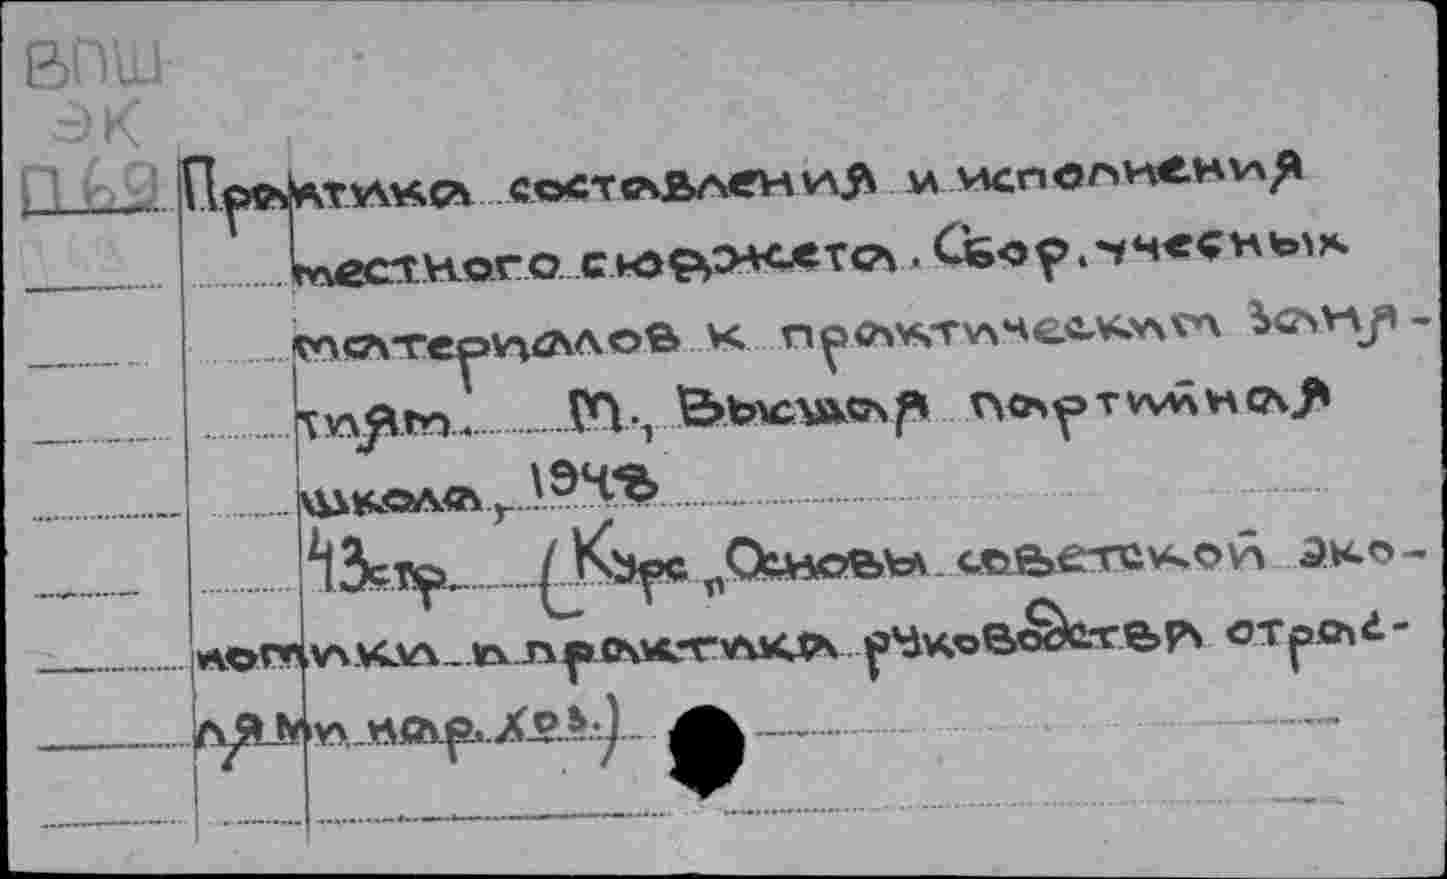 ВПШ
ЭК
П69
Практика составления и исполнения
местного бюджета. Сбор. учебных
материалов к практическим заня-
тиям. М., Высшая партийная
школа, 1948
43стр. (Курс „Основы советской эко-
номики и практика руководства отрас-
лями нар. хоз.)